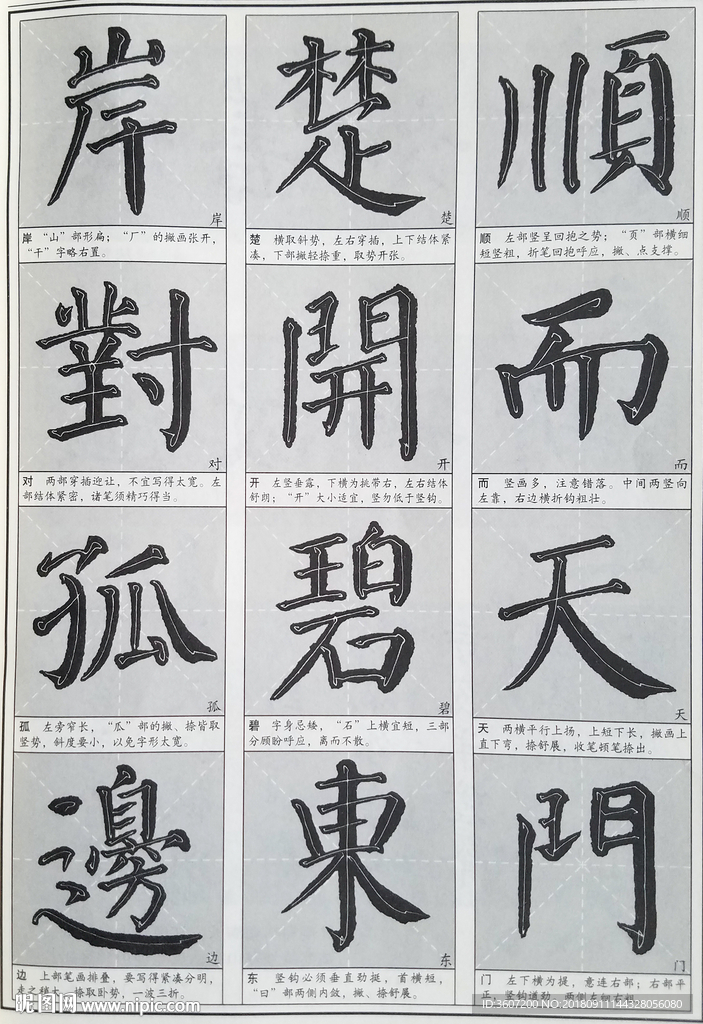 岸
岸
岸 “山”部形扁；“厂”的撇画张开，
“干”字略右置。
楚
楚
楚 横取斜势，左右穿插，上下结体紧
凑，下部撇轻捺重，取势开张。
順
顺
顺 左部竖呈回抱之势；“页”部横细
短竖粗，折笔回抱呼应，撇、点支撑。
對
对
对 两部穿插迎让，不宜写得太宽。左
部结体紧密，诸笔须精巧得当。
開
开
开 左竖垂露，下横为挑带右，左右结体
舒朗；“开”大小适宜，竖勿低于竖钩。
而
而
而 竖画多，注意错落。中间两竖向
左靠，右边横折钩粗壮。
孤
孤
孤 左旁窄长，“瓜”部的撇、捺皆取
竖势，斜度要小，以免字形太宽。
碧
碧
碧 字身忌矮，“石”上横宜短，三部
分顾盼呼应，离而不散。
天
天
天 两横平行上扬，上短下长，撇画上
直下弯，捺舒展，收笔顿笔捺出。
邊
边
边 上部笔画排叠，要写得紧凑分明，
捺取卧势，一波三折。
東
东
东 竖钩必须垂直劲挺，首横短，
“日”部两侧内敛，撇、捺舒展。
門
门
门 左下横为提，意连右部；右部平
正，竖钩遒劲，两侧左细右粗
昵图网 www.nipic.com
ID:3607200 NO:20180911144328056080